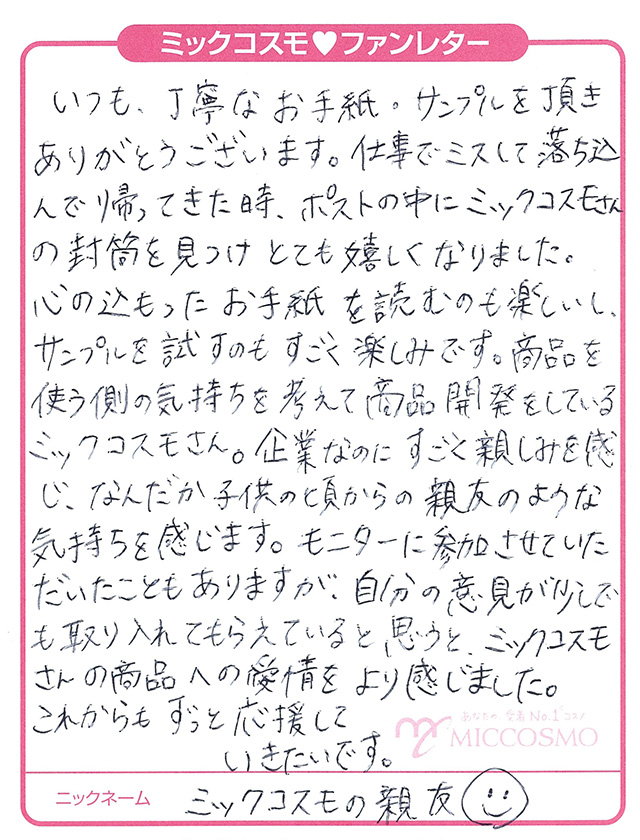 ミックコスモ♥ファンレター
いつも、丁寧なお手紙・サンプルを頂き
ありがとうございます。仕事でミスして落ち込
んで帰ってきた時、ポストの中にミックコスモさん
の封筒を見つけとても嬉しくなりました。
心の込もったお手紙を読むのも楽しいし、
サンプルを試すのもすごく楽しみです。商品を
使う側の気持ちを考えて商品開発をしている
ミックコスモさん。企業なのにすごく親しみを感
じ、なんだか子供の頃からの親友のような
気持ちを感じます。モニターに参加させていた
だいたこともありますが、自分の意見が少しで
も取り入れてもらえていると思うと、ミックコスモ
さんの商品への愛情をより感じました。
これからもずっと応援して
いきたいです。
あなたの、愛着No.1コスメ
MICCOSMO
ニックネーム ミックコスモの親友